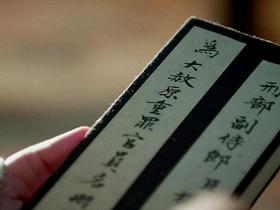 刑部副侍郎
為大赦原重罪官員名